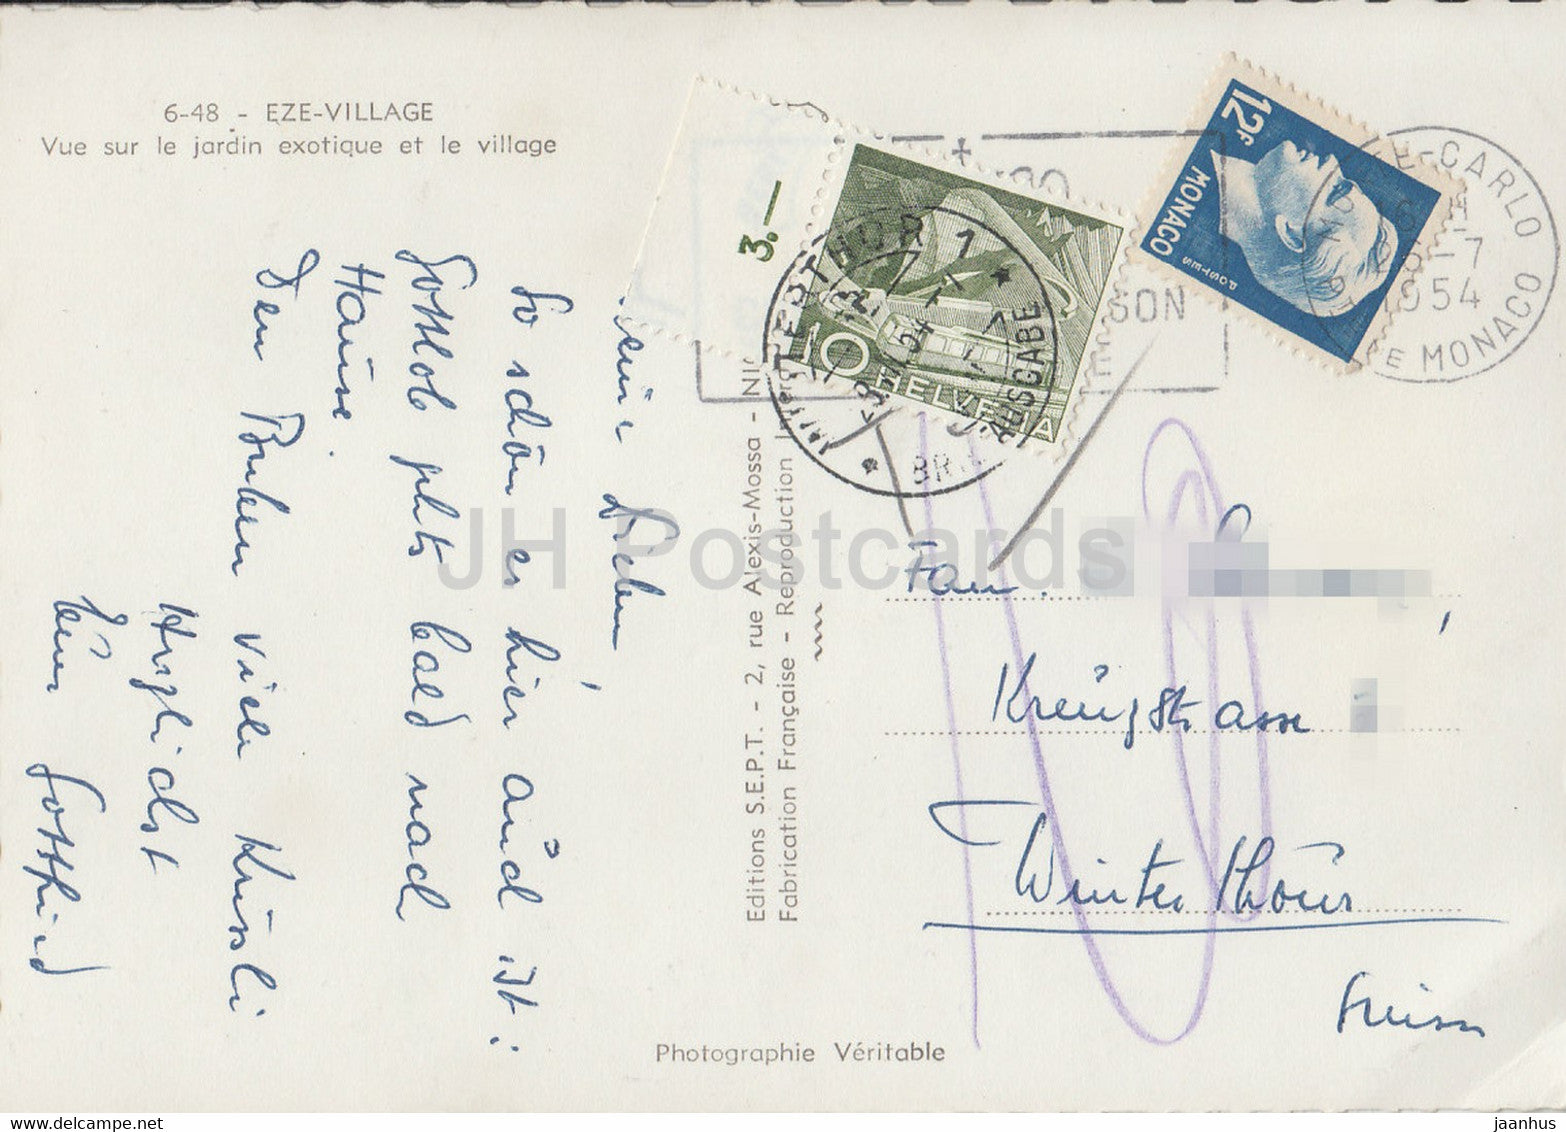 6-48 - EZE-VILLAGE
Vue sur le jardin exotique et le village
Lieben!
So schön es hier auch ist:
Gottlob gehts bald nach
Hause.
Den Buben viele Küssli
Herzlichst
Euer Gottfried
Editions S.E.P.T. - 2, rue Alexis-Mossa -
Fabrication Française - Reproduction
Photographie Véritable
3.—
10
HELVETIA
WINTERTHUR 1
AUSGABE
12F
MONACO
POSTES
MONTE-CARLO
25-7
1954
PTE DE MONACO
SON
Fam.
Kreuzstrasse
Winterthur
Suisse
JH Postcards
jaanhus